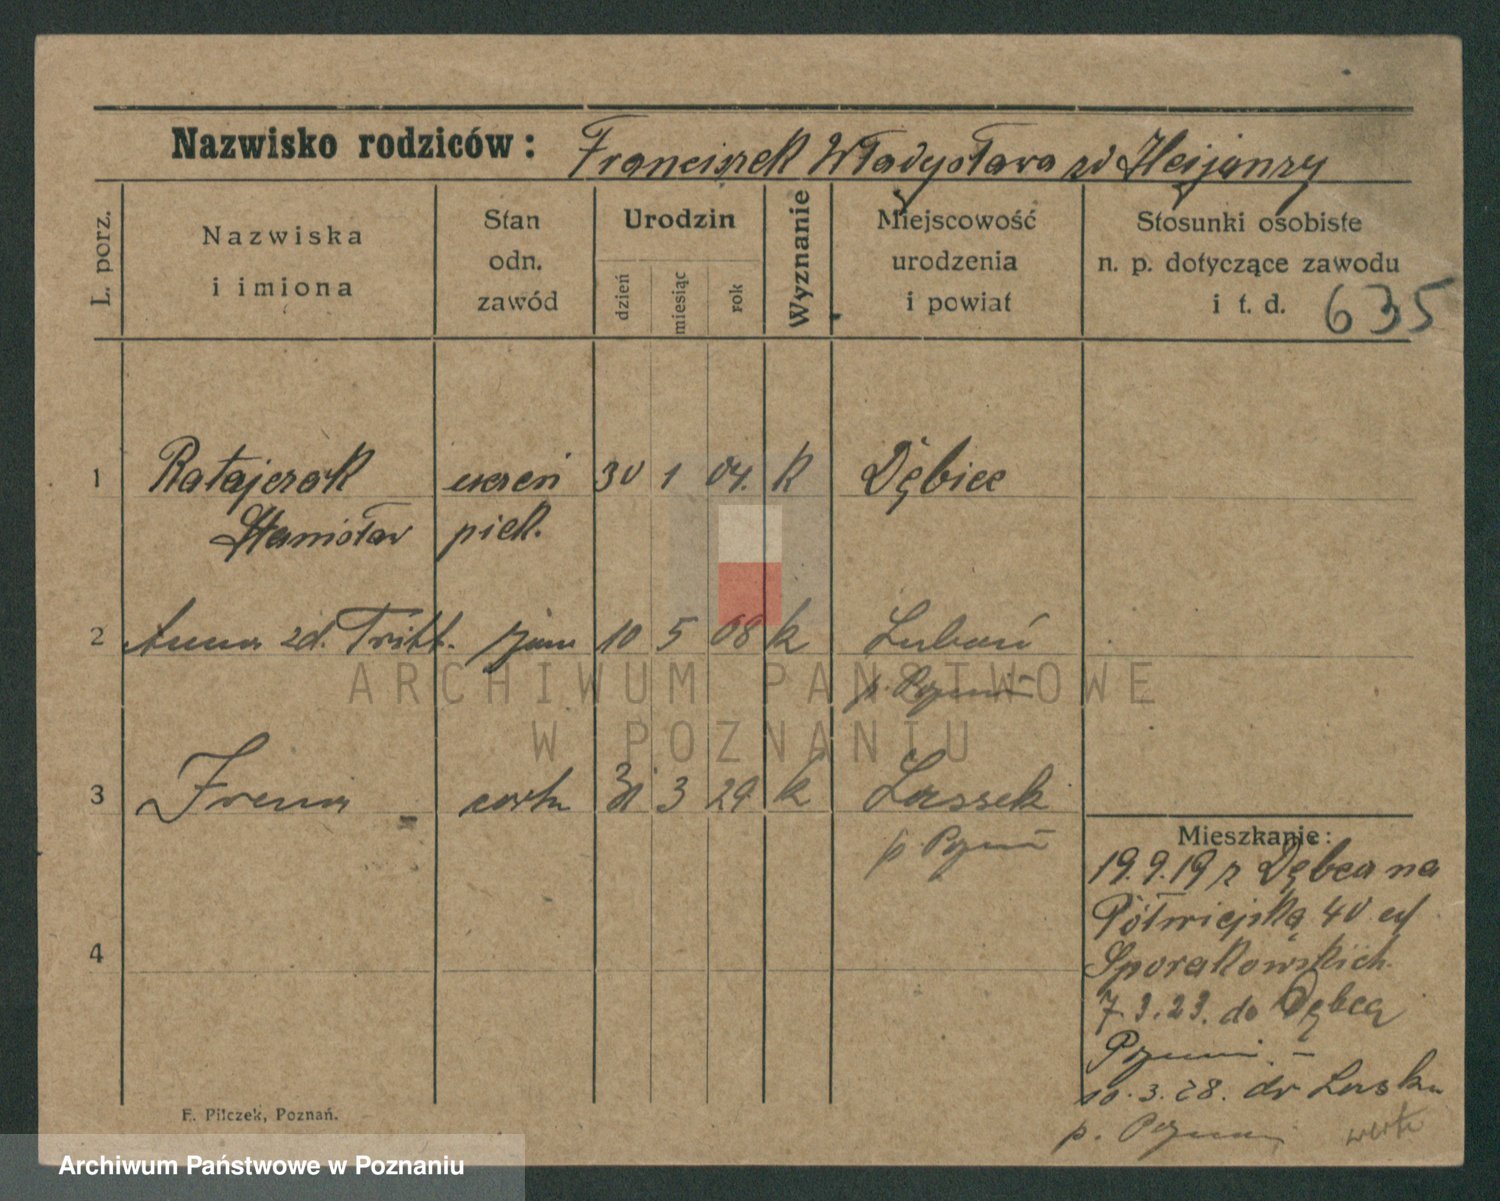 Nazwisko rodziców: Franciszek Władysława zd Heijanzy
L. porz.
Nazwiska i imiona
Stan odn. zawód
Urodzin
dzień
miesiąc
rok
Wyznanie
Miejscowość urodzenia i powiat
Stosunki osobiste n. p. dotyczące zawodu i t. d.
635
1 Ratajczak uczeń 30 1 04. K Dębiec
Stanisław piek.
2 Anna zd. Tritt. żona 10 5 08 k Luboń
p. Poznań
3 Irena córka 31 3 29 k Lassek
p Poznań
4
Mieszkanie:
19.9.19 z Dębca na
Półwiejską 40 u
Sporakowskich
7.3.23. do Dębca
Poznań. –
10.3.28. do Lasku
p. Poznań
F. Pilczek, Poznań.
ARCHIWUM PAŃSTWOWE
W POZNANIU
Archiwum Państwowe w Poznaniu